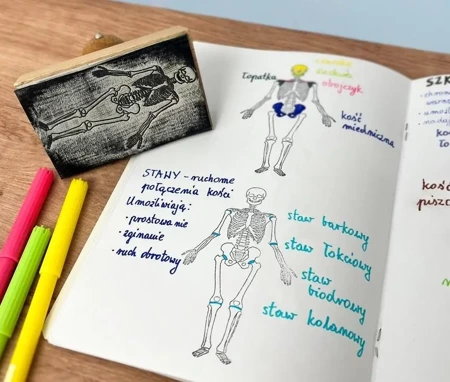 łopatka
czaszka
obojczyk
kość
miedniczna
STAWY - ruchome
połączenia kości
Umożliwiają:
· prostowanie
· zginanie
· ruch obrotowy
staw barkowy
staw łokciowy
staw
biodrowy
staw kolanowy
kość
piszc